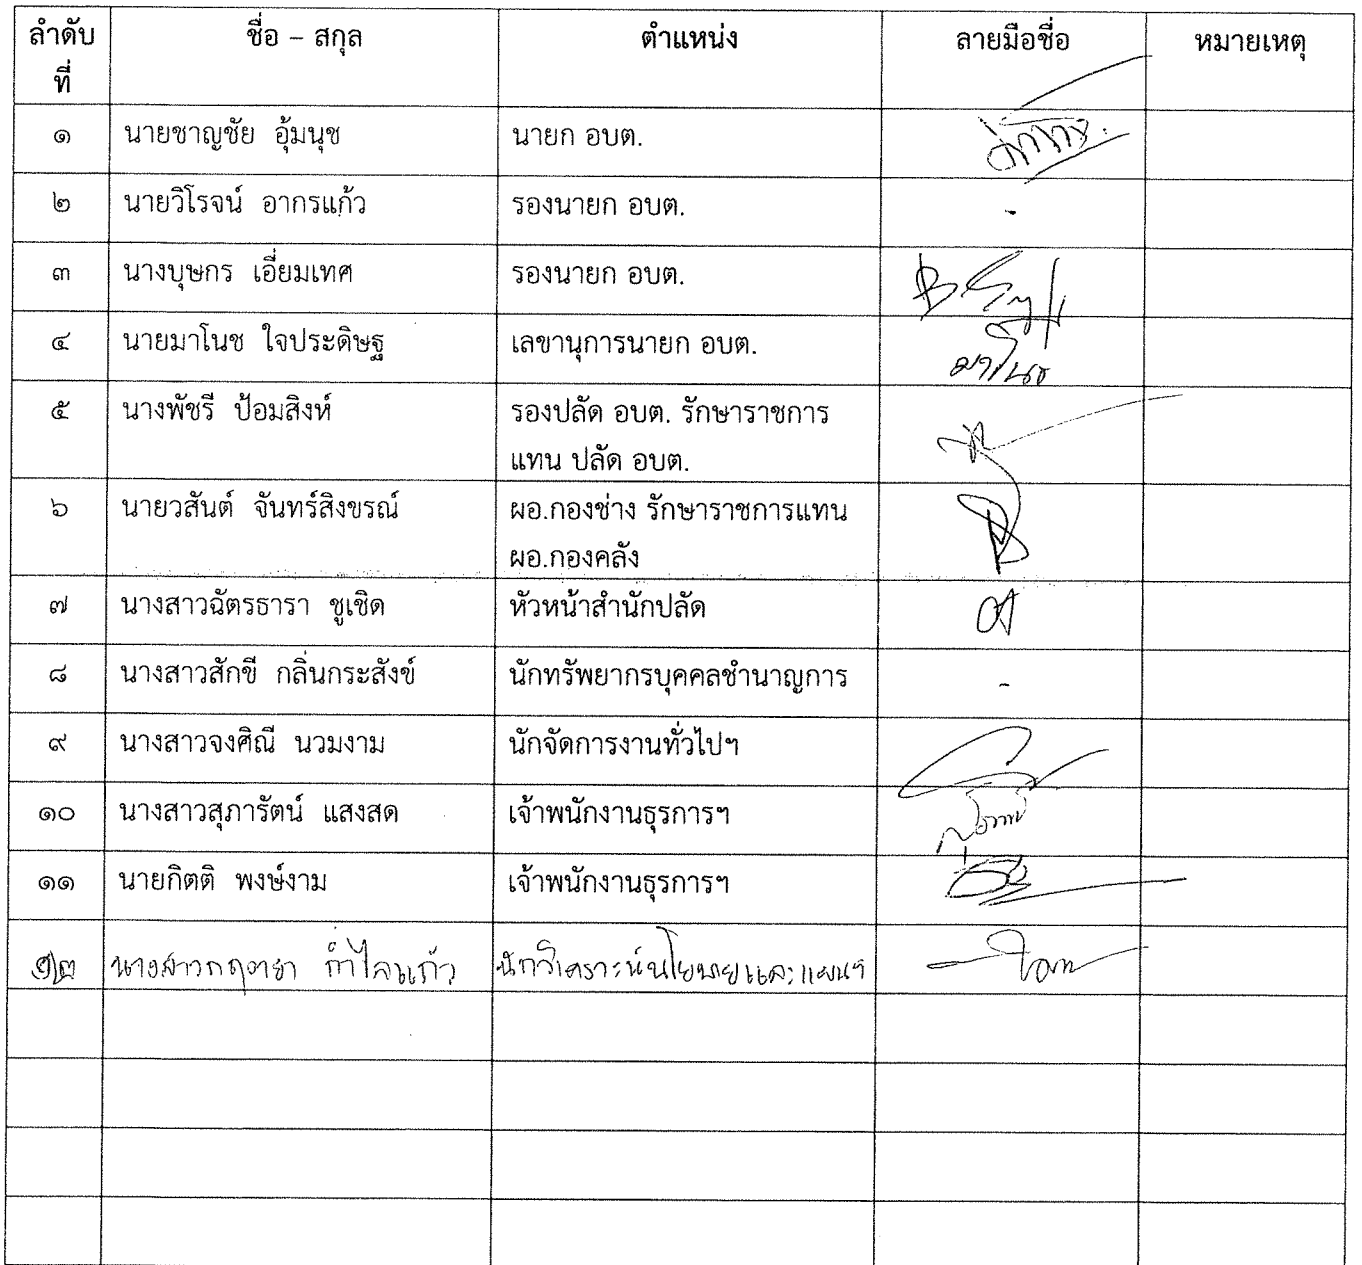 ลำดับ ชื่อ – สกุล ตำแหน่ง ลายมือชื่อ หมายเหตุ
ที่
๑ นายชาญชัย อุ้มนุช นายก อบต.
๒ นายวิโรจน์ อากรแก้ว รองนายก อบต. -
๓ นางบุษกร เอี่ยมเทศ รองนายก อบต.
๔ นายมาโนช ใจประดิษฐ เลขานุการนายก อบต. มาโนช
๕ นางพัชรี ป้อมสิงห์ รองปลัด อบต. รักษาราชการ
แทน ปลัด อบต.
๖ นายวสันต์ จันทร์สิงขรณ์ ผอ.กองช่าง รักษาราชการแทน
ผอ.กองคลัง
๗ นางสาวฉัตรธารา ชูเชิด หัวหน้าสำนักปลัด
๘ นางสาวสักขี กลิ่นกระสังข์ นักทรัพยากรบุคคลชำนาญการ -
๙ นางสาวจงศิณี นวมงาม นักจัดการงานทั่วไปฯ
๑๐ นางสาวสุภารัตน์ แสงสด เจ้าพนักงานธุรการฯ
๑๑ นายกิตติ พงษ์งาม เจ้าพนักงานธุรการฯ
๑๒ กำไลแก้ว นักวิเคราะห์นโยบายและแผนฯ